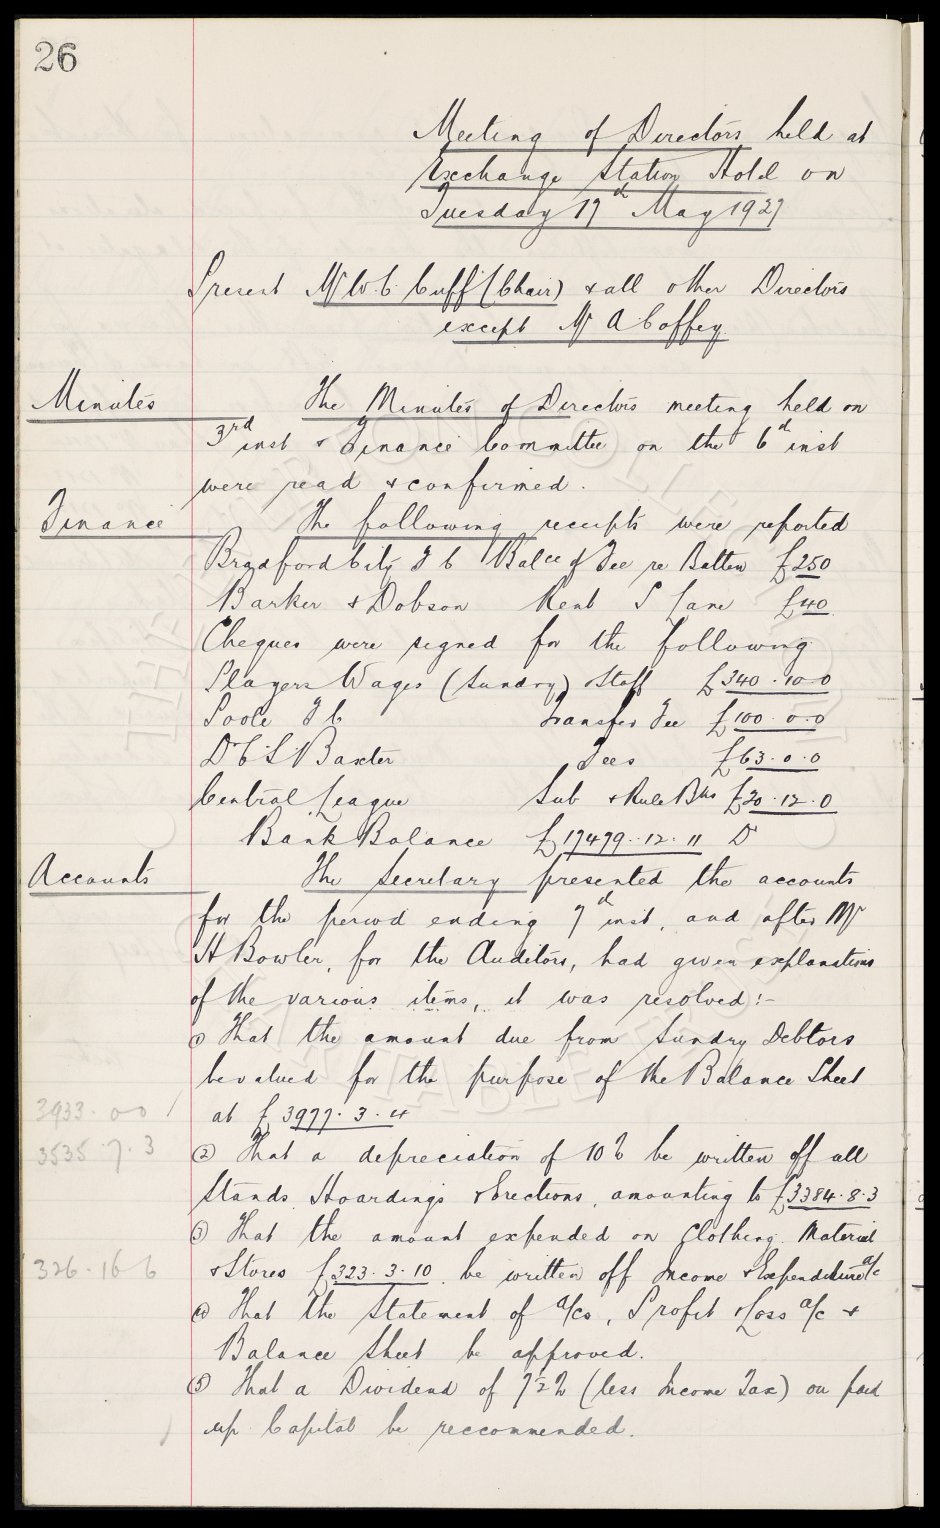 26
Meeting of Directors held at
Exchange Station Hotel on
Tuesday 17th May 1927
Present Mr W.C. Cuff (Chair) & all other Directors
except Mr A Coffey.
Minutes The Minutes of Directors meeting held on
3rd inst & Finance Committee on the 6th inst
were read & confirmed.
Finance The following receipts were reported
Bradford City F C Balce of Fee re Batten £250
Barker & Dobson Rent S Lane £40
Cheques were signed for the following
Players Wages (Sundry) Staff £340.10.0
Poole F C Transfer Fee £100.0.0
Dr C S Baxter Fees £63.0.0
Central League Sub & Rule Bks £20.12.0
Bank Balance £17479.12.11 Dr
Accounts The Secretary presented the accounts
for the period ending 7th inst, and after Mr
H Bowler, for the Auditors, had given explanations
of the various items, it was resolved:-
① That the amount due from Sundry Debtors
be valued for the purpose of the Balance Sheet
3933.0 0 at £3977.3.4
3535.7.3 ② That a depreciation of 10% be written off all
Stands Hoardings & Erections, amounting to £3384.8.3
③ That the amount expended on Clothing, Material
326.16 6 & Stores £323.3.10 be written off Income & Expenditure a/c
④ That the Statement of a/cs, Profit & Loss a/c &
Balance Sheet be approved.
⑤ That a Dividend of 7½% (less Income Tax) on paid
up Capital be reccommended.